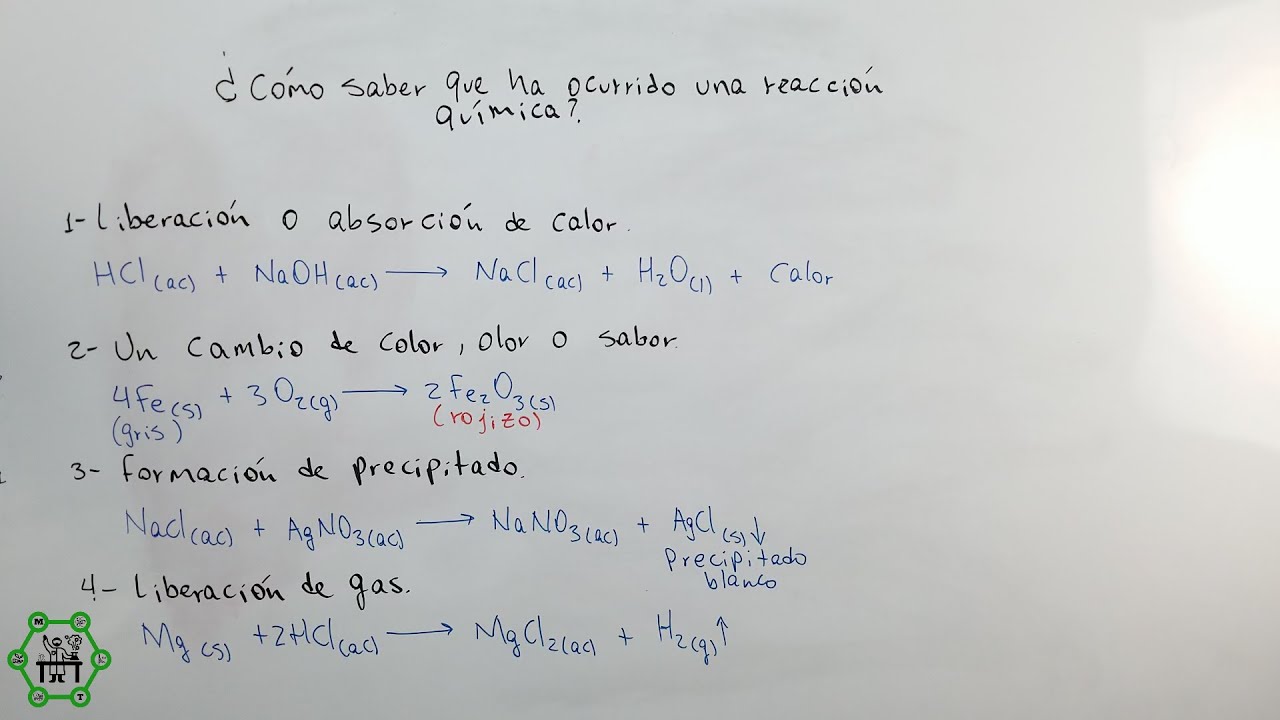 ¿Cómo saber que ha ocurrido una reacción
química?
1- Liberación o absorción de calor.
HCl(ac) + NaOH(ac) → NaCl(ac) + H₂O(l) + Calor
2- Un cambio de color, olor o sabor.
4Fe(s) + 3O₂(g) → 2Fe₂O₃(s)
(gris) (rojizo)
3- Formación de precipitado.
NaCl(ac) + AgNO₃(ac) → NaNO₃(ac) + AgCl(s)↓
Precipitado
blanco
4- Liberación de gas.
Mg(s) + 2HCl(ac) → MgCl₂(ac) + H₂(g)↑
M
T